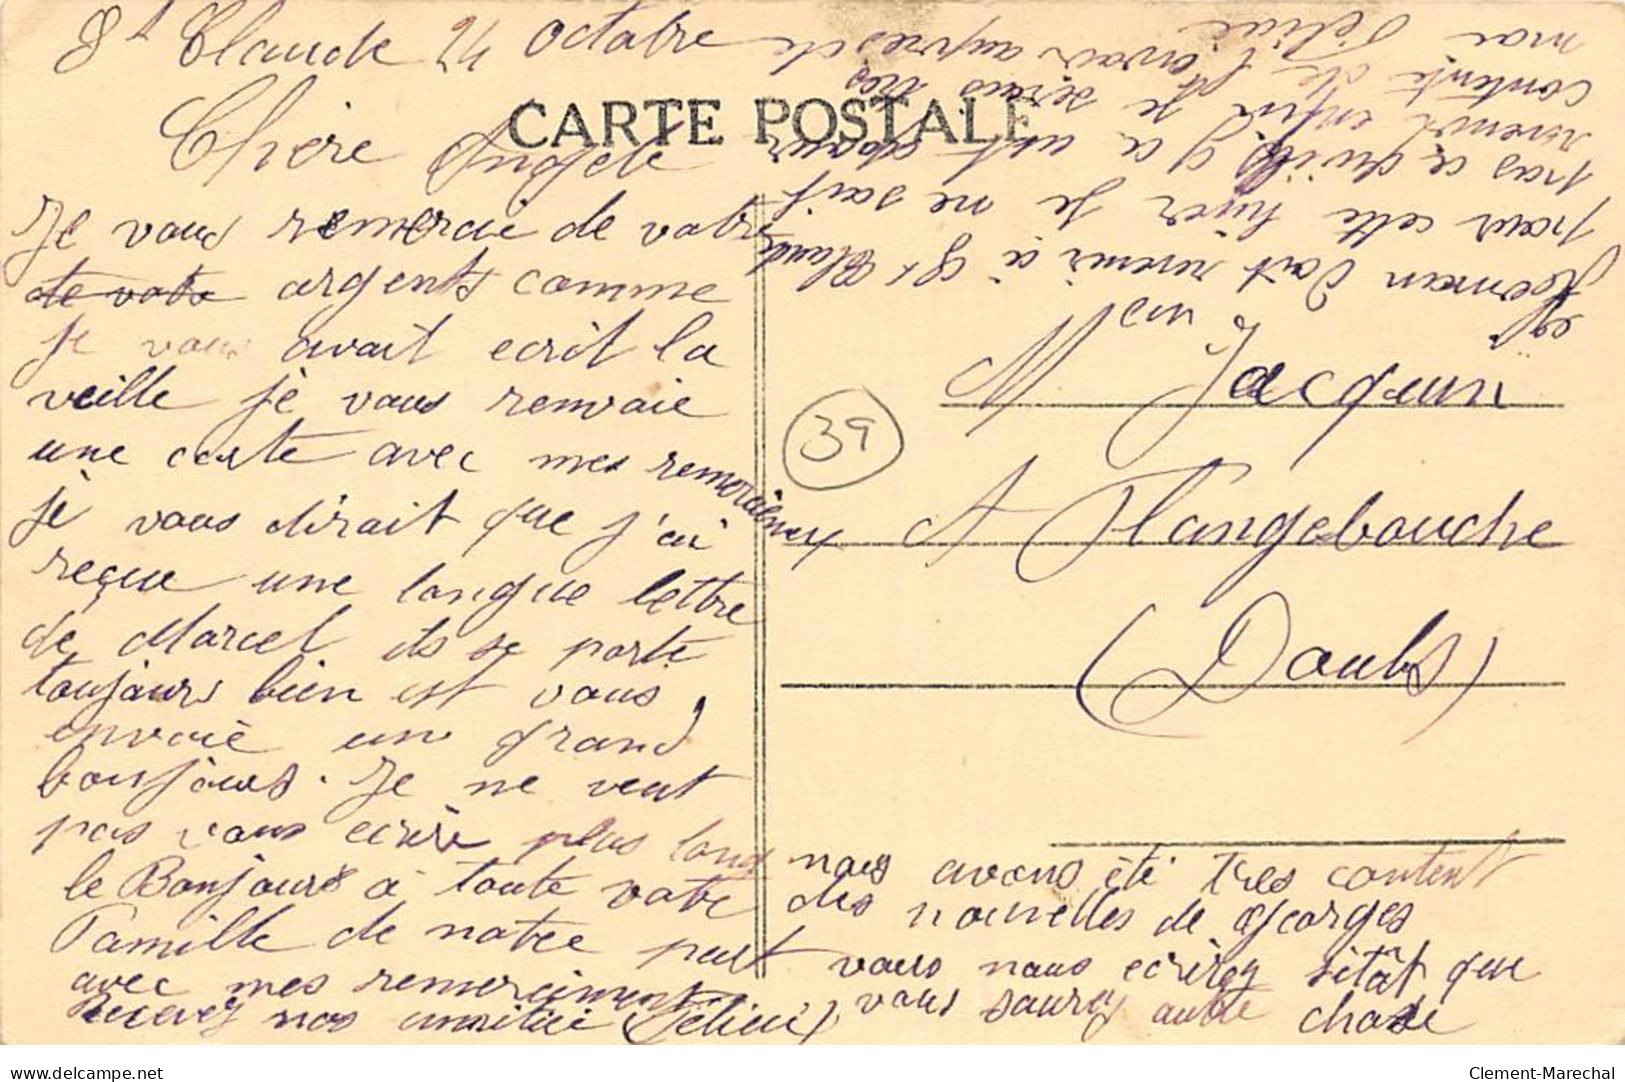 St Claude 24 Octobre
CARTE POSTALE
Chère Angele
Je vous remercie de votre
de votre argents comme
je vous avait ecrit la
veille je vous renvoie
une carte avec mes remerciements
je vous dirait que j'ai
reçue une longue lettre
de Marcel ils se porte
toujours bien est vous
envoie un grand
bonjours. Je ne veut
pas vous ecrire plus long
le Bonjours a toute votre
Famille de notre part
avec mes remerciments
Recevez nos amitiée Félicie
nous avons été tres content
des nouvelles de Georges
vous nous ecrirez sitât que
vous saurez autre chose
Germain doit revenir a St Claude
pour cette hiver je ne sait
pas a quil y a un jour
revenir enfin je serais tres
contente de l'avoir aupres de
moi Félicie
Mme Jacquin
39
A Flangebouche
(Doubs)
www.delcampe.net
Clement-Marechal